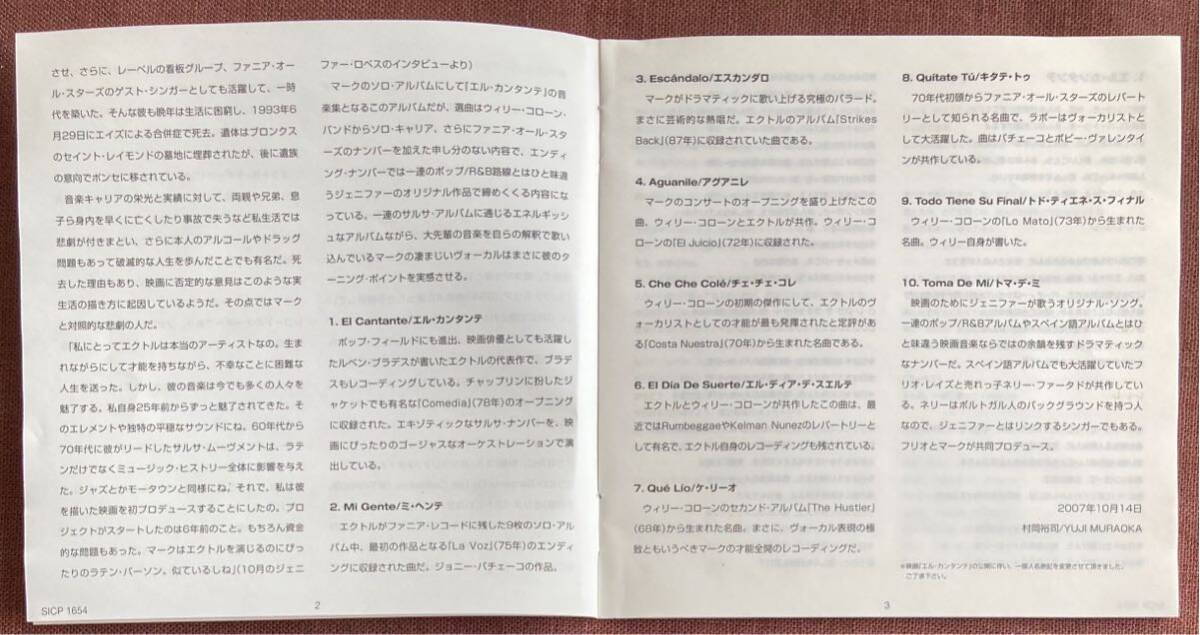 させ、さらに、レーベルの看板グループ、ファニア・オー
ル・スターズのゲスト・シンガーとしても活躍して、一時
代を築いた。そんな彼も晩年は生活に困窮し、1993年6
月29日にエイズによる合併症で死去。遺体はブロンクス
のセイント・レイモンドの墓地に埋葬されたが、後に遺族
の意向でポンセに移されている。
音楽キャリアの栄光と実績に対して、両親や兄弟、息
子ら身内を早くに亡くしたり事故で失うなど私生活では
悲劇が付きまとい、さらに本人のアルコールやドラッグ
問題もあって破滅的な人生を歩んだことでも有名だ。死
去した理由もあり、映画に否定的な意見はこのような実
生活の描き方に起因しているようだ。その点ではマーク
と対照的な悲劇の人だ。
「私にとってエクトルは本当のアーティストなの。生ま
れながらにして才能を持ちながら、不幸なことに困難な
人生を送った。しかし、彼の音楽は今でも多くの人々を
魅了する。私自身25年前からずっと魅了されてきた。そ
のエレメントや独特の平穏なサウンドにね。60年代から
70年代に彼がリードしたサルサ・ムーヴメントは、ラテ
ンだけでなくミュージック・ヒストリー全体に影響を与え
た。ジャズとかモータウンと同様にね。それで、私は彼
を描いた映画を初プロデュースすることにしたの。プロ
ジェクトがスタートしたのは6年前のこと。もちろん資金
的な問題もあった。マークはエクトルを演じるのにぴっ
たりのラテン・パーソン。似ているしね」(10月のジェニ
SICP 1654
ファー・ロペスのインタビューより)
マークのソロ・アルバムにして『エル・カンタンテ』の音
楽集となるこのアルバムだが、選曲はウィリー・コローン・
バンドからソロ・キャリア、さらにファニア・オール・スタ
ーズのナンバーを加えた申し分のない内容で、エンディ
ング・ナンバーでは一連のポップ/R&B路線とはひと味違
うジェニファーのオリジナル作品で締めくくる内容にな
っている。一連のサルサ・アルバムに通じるエネルギッシ
ュなアルバムながら、大先輩の音楽を自らの解釈で歌い
込んでいるマークの凄まじいヴォーカルはまさに彼のタ
ーニング・ポイントを実感させる。
1. El Cantante/エル・カンタンテ
ポップ・フィールドにも進出、映画俳優としても活躍し
たルベン・ブラデスが書いたエクトルの代表作で、ブラデ
スもレコーディングしている。チャップリンに扮したジ
ャケットでも有名な『Comedia』(78年)のオープニング
に収録された。エキゾティックなサルサ・ナンバーを、映
画にぴったりのゴージャスなオーケストレーションで演
出している。
2. Mi Gente/ミ・ヘンテ
エクトルがファニア・レコードに残した9枚のソロ・アル
バム中、最初の作品となる『La Voz』(75年)のエンディ
ングに収録された曲だ。ジョニー・パチェーコの作品。
2
3. Escándalo/エスカンダロ
マークがドラマティックに歌い上げる究極のバラード。
まさに芸術的な熱唱だ。エクトルのアルバム『Strikes
Back』(87年)に収録されていた曲である。
4. Aguanile/アグアニレ
マークのコンサートのオープニングを盛り上げたこの
曲、ウィリー・コローンとエクトルが共作。ウィリー・コ
ローンの『El Juicio』(72年)に収録された。
5. Che Che Colé/チェ・チェ・コレ
ウィリー・コローンの初期の傑作にして、エクトルのヴ
ォーカリストとしての才能が最も発揮されたと定評があ
る『Costa Nuestra』(70年)から生まれた名曲である。
6. El Día De Suerte/エル・ディア・デ・スエルテ
エクトルとウィリー・コローンが共作したこの曲は、最
近ではRumbeggaeやKelman Nunezのレパートリーと
して有名で、エクトル自身のレコーディングも残されている。
7. Qué Lío/ケ・リーオ
ウィリー・コローンのセカンド・アルバム『The Hustler』
(68年)から生まれた名曲。まさに、ヴォーカル表現の極
致ともいうべきマークの才能全開のレコーディングだ。
8. Quítate Tú/キタテ・トゥ
70年代初頭からファニア・オール・スターズのレパート
リーとして知られる名曲で、ラボーはヴォーカリストと
して大活躍した。曲はパチェーコとボビー・ヴァレンタイ
ンが共作している。
9. Todo Tiene Su Final/トド・ティエネ・ス・フィナル
ウィリー・コローンの『Lo Mato』(73年)から生まれた
名曲。ウィリー自身が書いた。
10. Toma De Mi/トマ・デ・ミ
映画のためにジェニファーが歌うオリジナル・ソング。
一連のポップ/R&Bアルバムやスペイン語アルバムとはひ
と味違う映画音楽ならではの余韻を残すドラマティック
なナンバーだ。スペイン語アルバムでも大活躍していたフ
リオ・レイズと売れっ子ネリー・ファータドが共作してい
る。ネリーはポルトガル人のバックグラウンドを持つ人
なので、ジェニファーとはリンクするシンガーでもある。
フリオとマークが共同プロデュース。
2007年10月14日
村岡裕司/YUJI MURAOKA
※映画『エル・カンタンテ』の公開に伴い、一部人名表記を変更させて頂きました。
ご了承下さい。
3